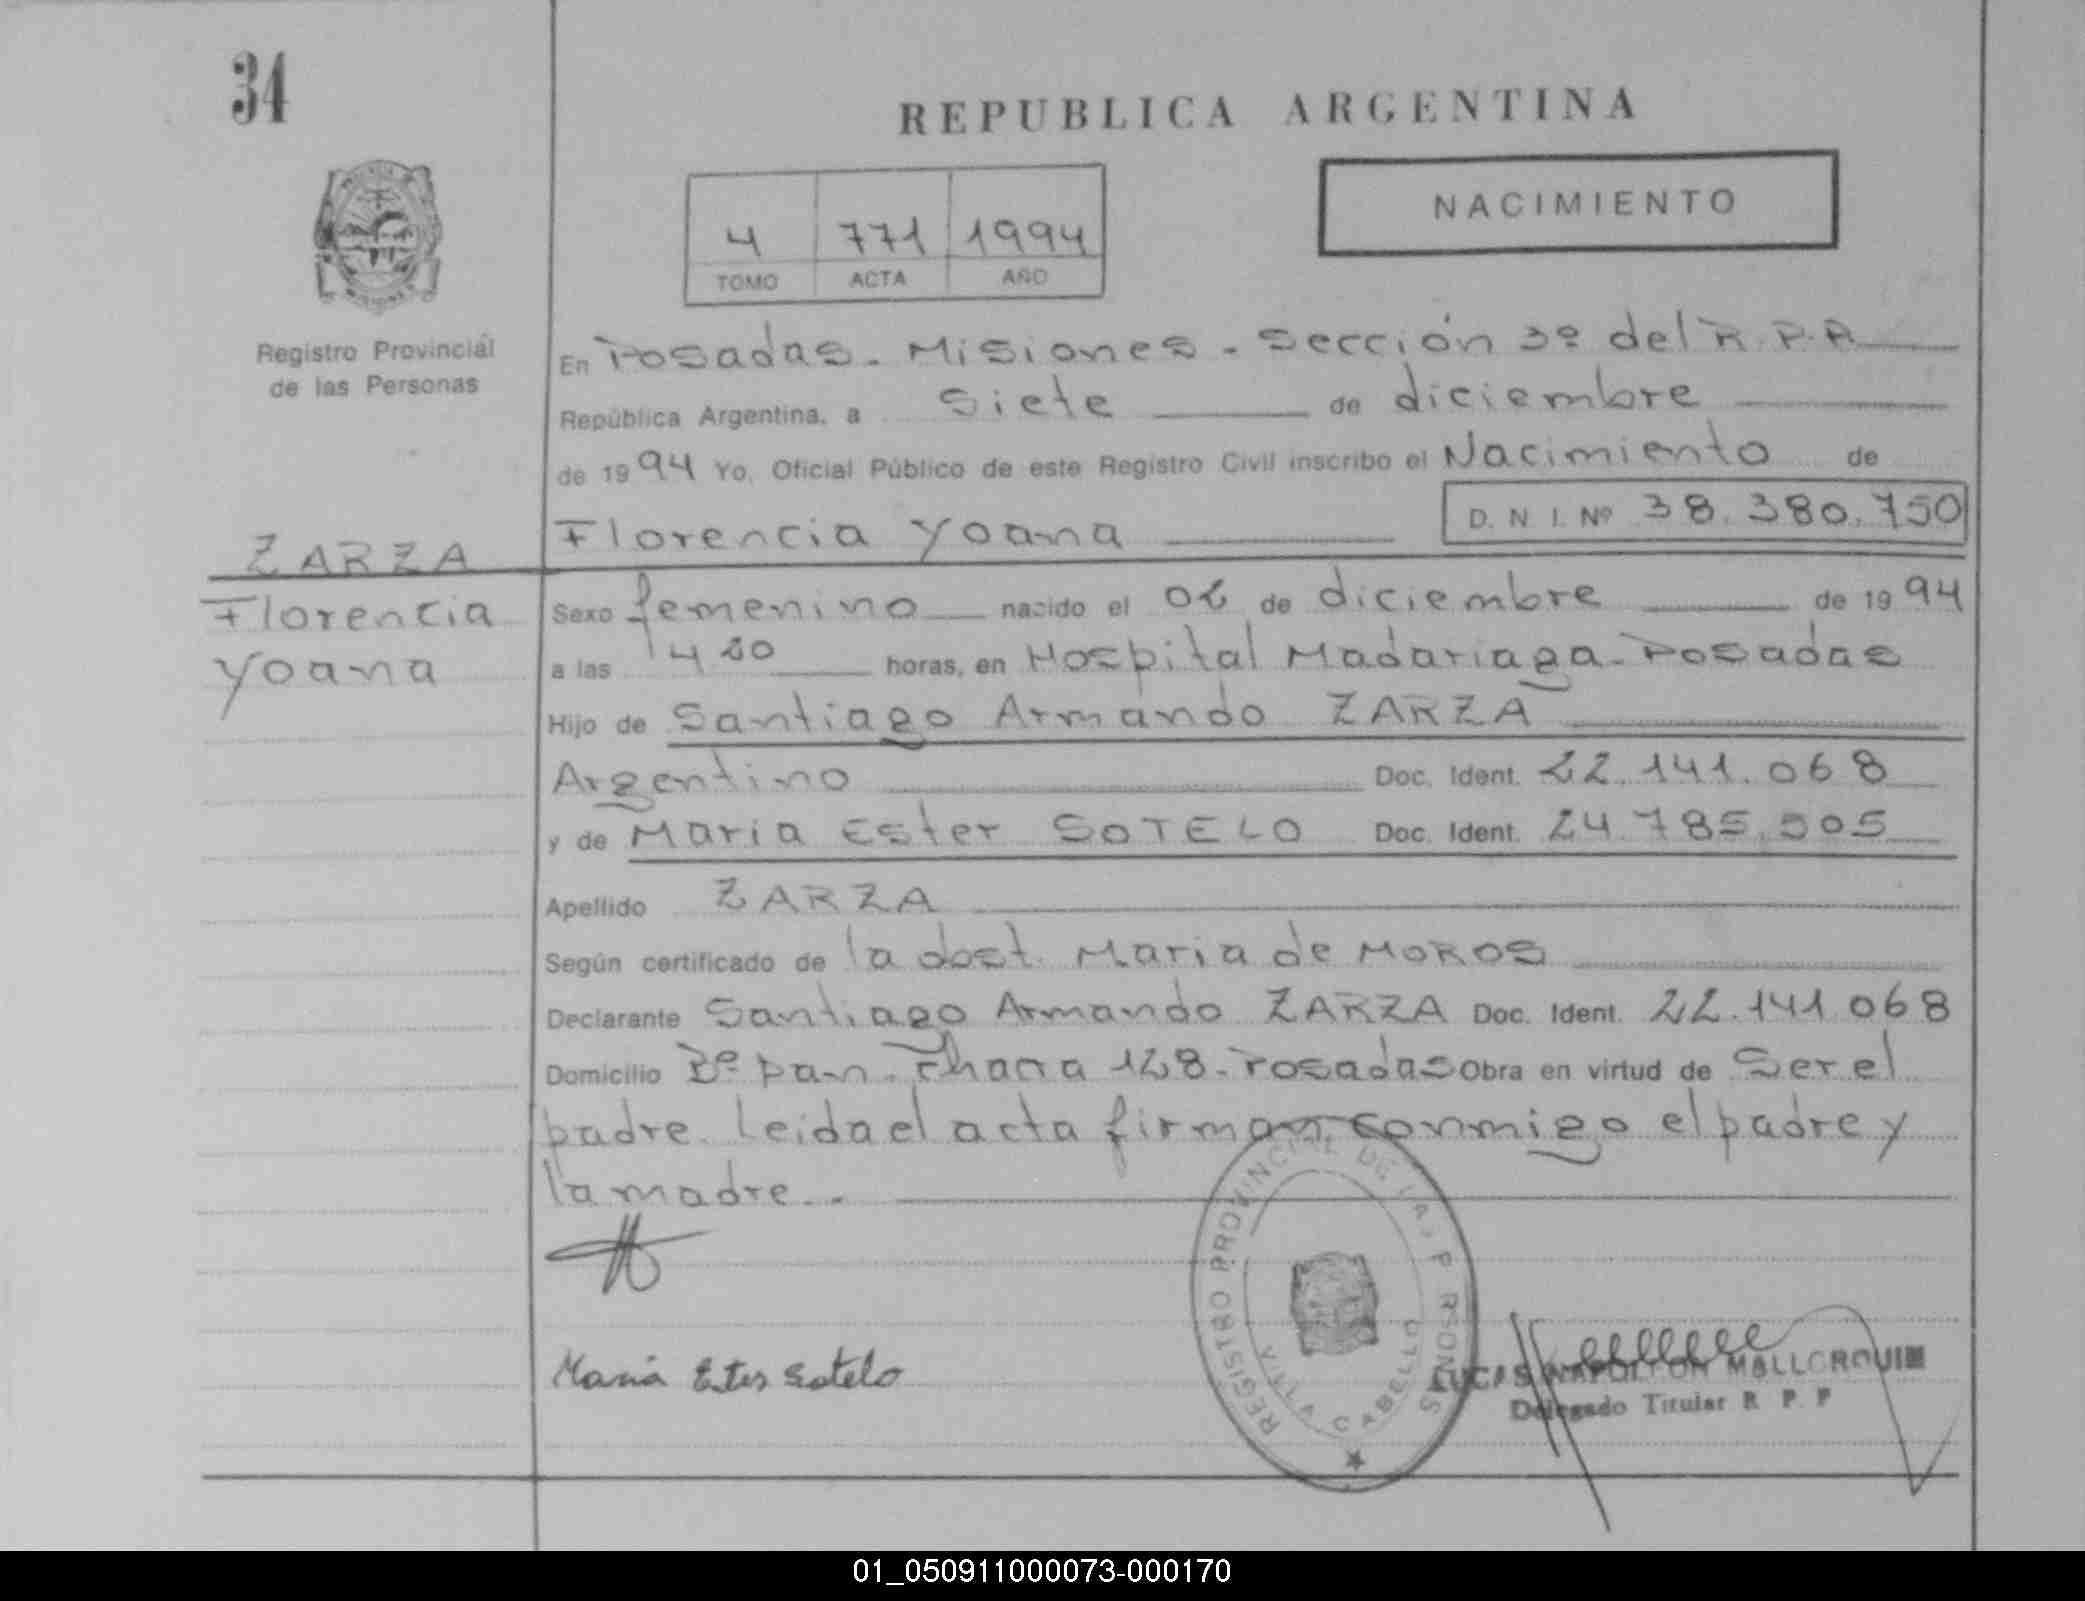 34
REPUBLICA ARGENTINA
NACIMIENTO
4 771 1994
TOMO ACTA AÑO
Registro Provincial
de las Personas
En Posadas - Misiones - Sección 3º del R.P.P.
República Argentina, a Siete de diciembre
de 1994 Yo, Oficial Público de este Registro Civil inscribo el Nacimiento de
Florencia Yoana D. N. I. Nº 38.380.750
ZARZA
Florencia
Yoana
Sexo femenino nacido el 02 de diciembre de 1994
a las 14 20 horas, en Hospital Madariaga - Posadas
Hijo de Santiago Armando ZARZA
Argentino Doc. Ident. 22.141.068
y de Maria Ester SOTELO Doc. Ident. 24.785.505
Apellido ZARZA
Según certificado de la obst. Maria de MOROS
Declarante Santiago Armando ZARZA Doc. Ident. 22.141.068
Domicilio Bº 128 - Posadas Obra en virtud de Ser el
padre. Leida el acta firman conmigo el padre y
la madre.-
Maria Ester Sotelo
REGISTRO PROVINCIAL DE LAS PERSONAS
VILLA CABELLO
LUCAS NAPOLEON MALLORQUIN
Delegado Titular R. P. P.
01_050911000073-000170